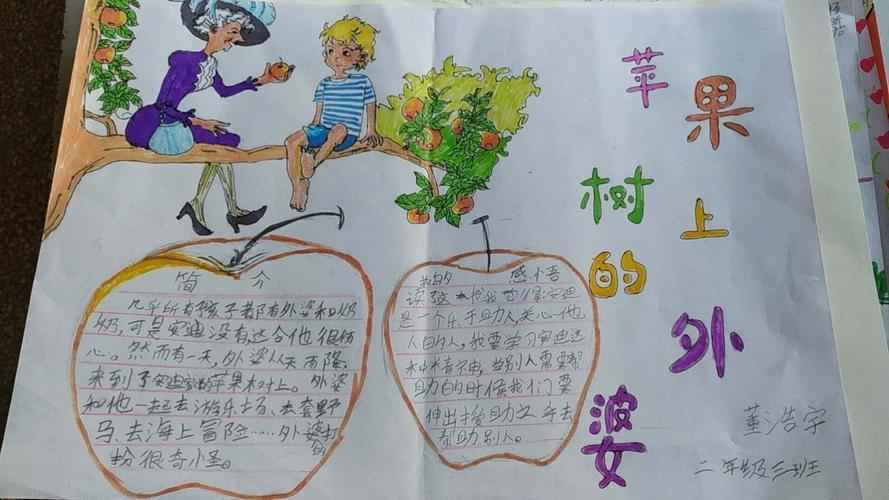 苹果树上的外婆
简介
几乎所有孩子都有外婆和奶
奶,可是安迪没有,这令他很伤
心。然而有一天,外婆从天而降,
来到了安迪家的苹果树上。外婆
和他一起去游乐场、去套野
马、去海上冒险……外婆打
扮的很奇小怪。
我的感悟
读这本书我觉得安迪
是一个乐于助人,关心他
人的人,我要学习安迪这
种精神,当别人需要帮
助的时候我们要
伸出援助之手去
帮助别人。
董浩宇
二年级三班